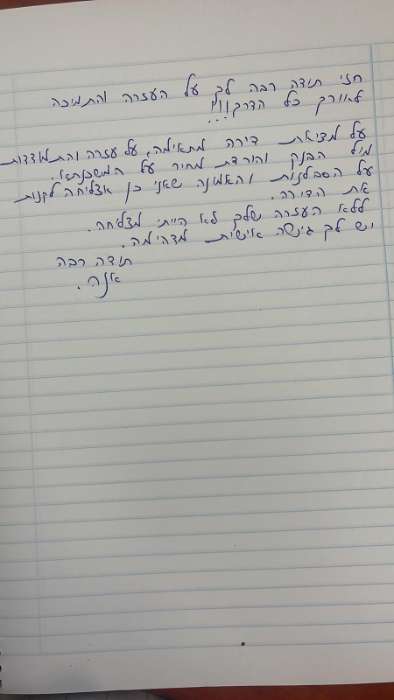 חזי תודה רבה לך על העזרה והתמיכה
לאורך כל הדרך!!!
על מציאת דירה מתאימה, על עזרה והתמודדות
מול הבנק והורדת מחיר על המשכנתא.
על הסבלנות והאמונה שאני כן אצליחה לקנות
את הדירה.
ללא העזרה שלך לא הייתי מצליחה.
יש לך גישה אישית מדהימה.
תודה רבה
אנה.